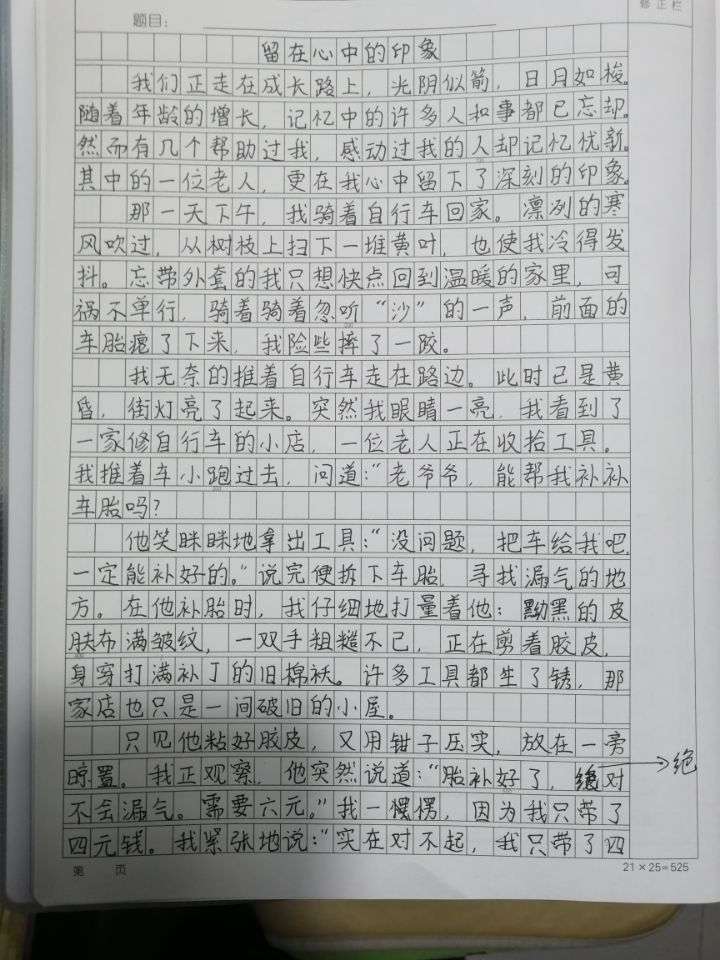 修正栏
题目：
留在心中的印象
我们正走在成长路上，光阴似箭，日月如梭。
随着年龄的增长，记忆中的许多人和事都已忘却。
然而有几个帮助过我，感动过我的人却记忆忧新。
其中的一位老人，更在我心中留下了深刻的印象。
那一天下午，我骑着自行车回家。凛冽的寒
风吹过，从树枝上扫下一堆黄叶，也使我冷得发
抖。忘带外套的我只想快点回到温暖的家里，可
祸不单行，骑着骑着忽听“沙”的一声，前面的
车胎瘪了下来，我险些摔了一跤。
我无奈的推着自行车走在路边。此时已是黄
昏，街灯亮了起来。突然我眼睛一亮，我看到了
一家修自行车的小店，一位老人正在收拾工具。
我推着车小跑过去，问道：“老爷爷，能帮我补补
车胎吗？
他笑眯眯地拿出工具：“没问题，把车给我吧，
一定能补好的。”说完便拆下车胎，寻找漏气的地
方。在他补胎时，我仔细地打量着他：黝黑的皮
肤布满皱纹，一双手粗糙不已，正在剪着胶皮，
身穿打满补丁的旧棉袄。许多工具都生了锈，那
家店也只是一间破旧的小屋。
只见他粘好胶皮，又用钳子压实，放在一旁
晾置。我正观察，他突然说道：“胎补好了，绝对
绝
不会漏气。需要六元。”我一愣愣，因为我只带了
四元钱。我紧张地说：“实在对不起，我只带了四
第 页
21×25=525